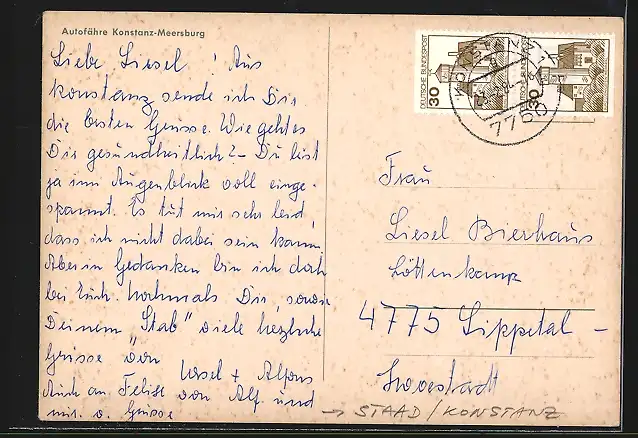 Autofähre Konstanz-Meersburg
Liebe Liesel! Aus
Konstanz sende ich Dir
die besten Grüsse. Wie geht es
Dir gesundheitlich? - Du bist
ja im Augenblick voll einge-
spannt. Es tut mir sehr leid,
dass ich nicht dabei sein kann.
Aber in Gedanken bin ich doch
bei Euch. Nochmals Dir, sowie
Deinem "Stab" viele herzliche
Grüsse von
Ursel + Alfons
Auch an Felise von Alf. und
mir. v. Grüsse
DEUTSCHE BUNDESPOST
30
DEUTSCHE BUNDESPOST
30
KONSTANZ
7750
Frau
Liesel Bierhaus
Löttenkamp
4775 Lippetal -
Hovestadt
→ STAAD / KONSTANZ